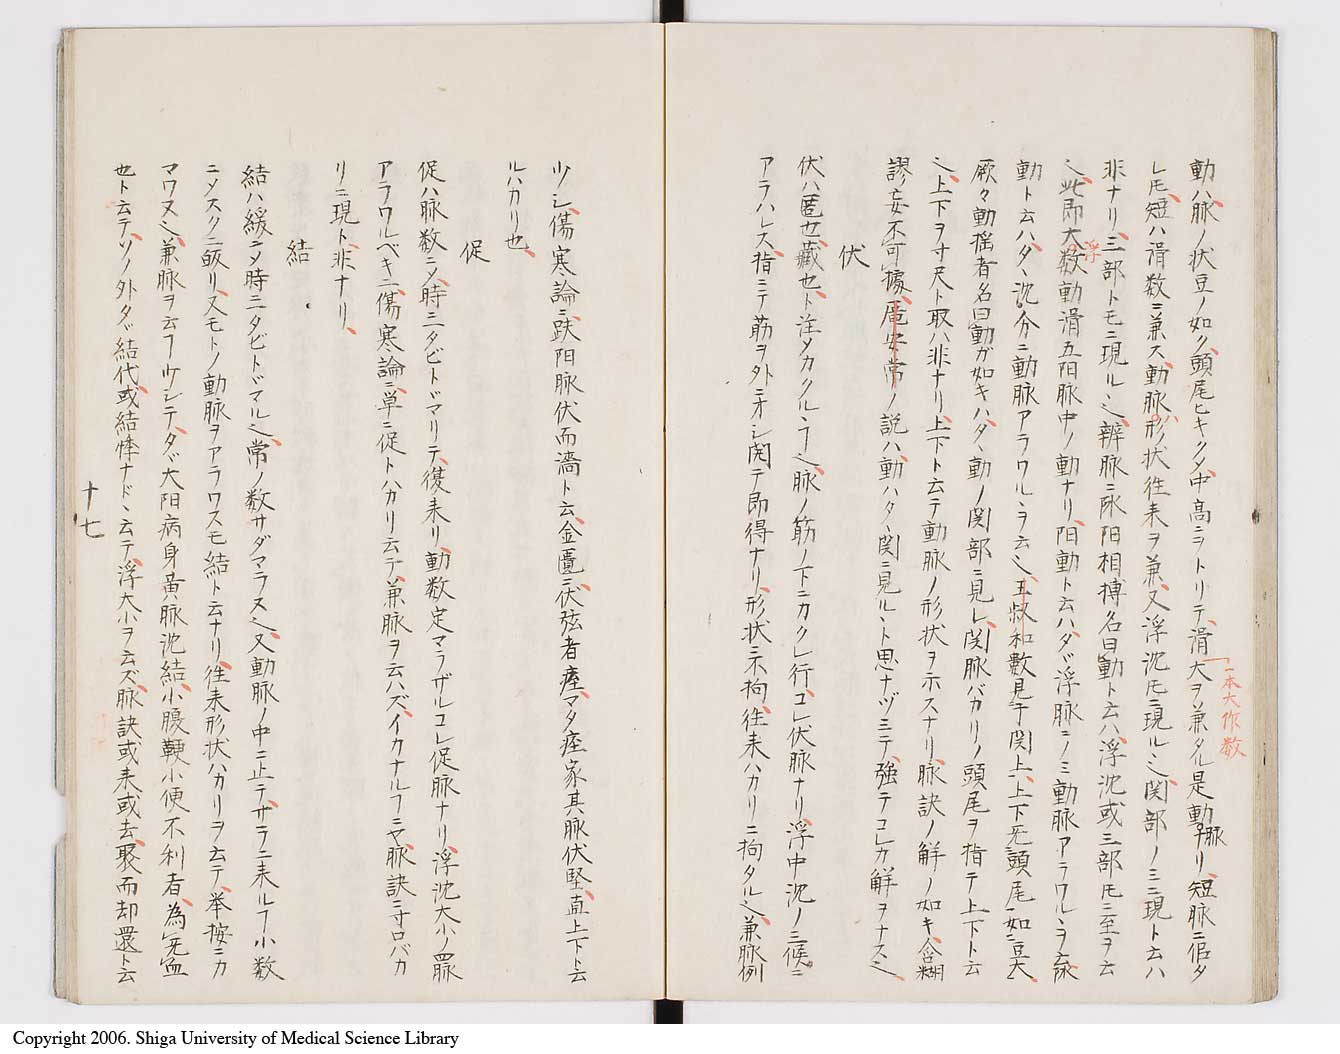 動ハ脉ノ状豆ノ如ク頭尾ヒキクタ中高ニヲトリテ滑大ヲ兼タル是動脉ナリ短脉ニ佀タ
一本大作数
レ𪜈短ハ滑数ニ兼ス動脉ハ形ノ状徃来ヲ兼又浮沈𪜈ニ現ルヽ也関部ノミニ現ト云ハ
非ナリ三部トモニ現ルヽ也辨脉ニ陰陽相搏名曰動ト云ハ浮沈或三部𪜈ニ至ヲ云
也此即大浮数動滑五阳脉中ノ動ナリ阳動ト云ハタヾ浮脉ニノミ動脉アラワルヽヲ云陰
動ト云ハタヽ沈分ニ動脉アラワルヽヲ云也王叔和数見于関上上下无頭尾如豆大
厥々動揺者名曰動ガ如キハタヽ動ノ関部ニ見レ関脉バカリノ頭尾ヲ指テ上下ト云
也上下ヲ寸尺ト取ハ非ナリ上下ト云テ動脉ノ形状ヲ示スナリ脉訣ノ解ノ如キ含糊
謬妄不可據龐安常ノ説ハ動ハタヽ関ニ見ルヽト思ナヅミテ強テコレカ解ヲナス也
伏
伏ハ匿也藏也ト注メカクルヽヿ也脉ノ筋ノ下ニカクレ行コレ伏脉ナリ浮中沈ノ三候ニ
アラハレス指ニテ筋ヲ外ニオシ関テ即得ナリ形状ニ不拘徃来ハカリニ拘タル也兼脉例
少シ傷寒論ニ趺阳脉伏而濇ト云金匱ニ伏弦者痙マタ痙家其脉伏堅直上下ト云
ルハカリ也
促
促ハ脉数ニメ時ニタビトドマリテ復来リ動数定マラザルコレ促脉ナリ浮沈大小ノ四脉
アラワルベキニ傷寒論ニ単ニ促トハカリ云テ兼脉ヲ云ハズイカナルヿニヤ脉訣ニ寸口バカ
リニ現ト非ナリ
結
結ハ緩ニメ時ニタビトドマル也常ノ数サダマラス也又動脉ノ中ニ止テサラニ来ルヿ小数
ニメスクニ皈リスモトノ動脉ヲアラワスモ結ト云ナリ徃来形状ハカリヲ云テ挙按ニカ
マワヌ也兼脉ヲ云ヿ少シテタヾ大阳病身黄脉沈結小腹鞕小便不利者為无血
也ト云テソノ外タヾ結代或結悸ナドヽ云テ浮大小ヲ云ズ脉訣或来或去聚而却還ト云
十七
Copyright 2006. Shiga University of Medical Science Library